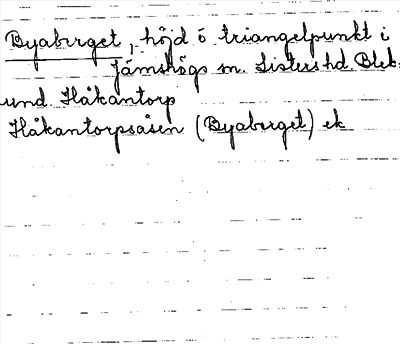 Byabërget, höjd ö triangelpunkt i
Jämshögs sn. Listers hd. Blek.
und. Håkantorp
Håkantorpsåsen (Byaberget) ek